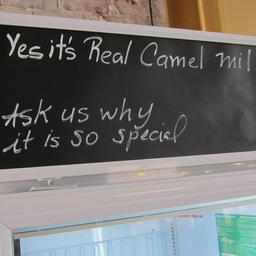 Yes it's Real Camel mil
Ask us why
it is so special